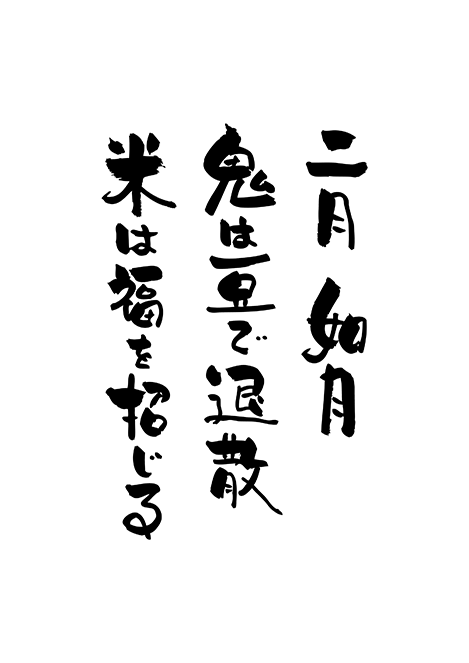 二月 如月
鬼は豆で退散
米は福を招じる